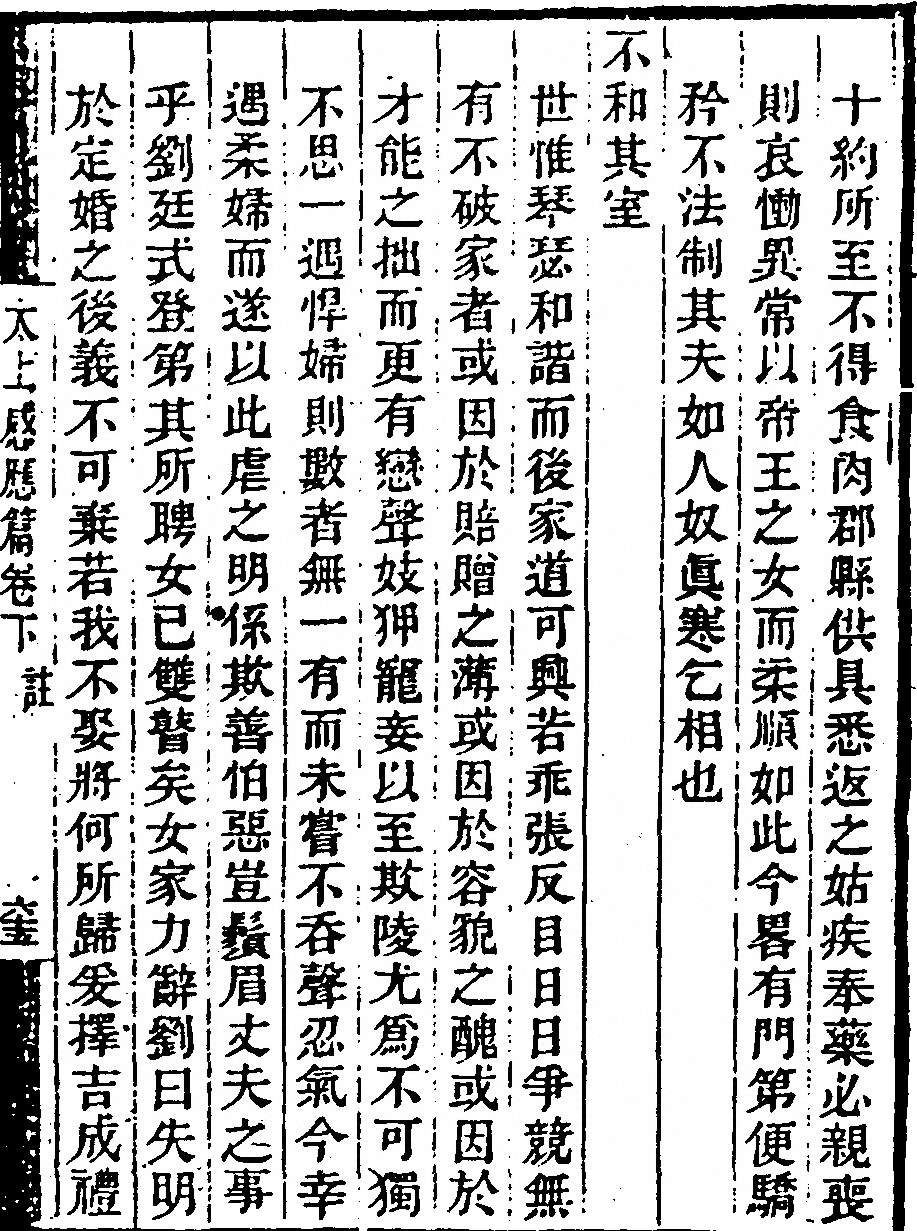 十約所至不得食肉郡縣供具悉返之姑疾奉藥必親喪
則哀慟異常以帝王之女而柔順如此今畧有門第便驕
矜不法制其夫如人奴眞寒乞相也
不和其室
世惟琴瑟和諧而後家道可興若乖張反目日日爭競無
有不破家者或因於賠贈之薄或因於容貌之醜或因於
才能之拙而更有戀聲妓狎寵妾以至欺陵尤爲不可獨
不思一遇悍婦則數者無一有而未嘗不吞聲忍氣今幸
遇柔婦而遂以此虐之明係欺善怕惡豈鬚眉丈夫之事
乎劉廷式登第其所聘女已雙瞽矣女家力辭劉曰失明
於定婚之後義不可棄若我不娶將何所歸爰擇吉成禮
太上感應篇卷下 註